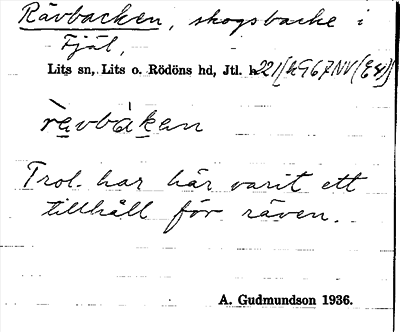 Rävbacken, skogsbacke i
Fjäl,
Lits sn, Lits o. Rödöns hd, Jtl.
rävbàken
Trol. har här varit ett
tillhåll för räven.
A. Gudmundson 1936.